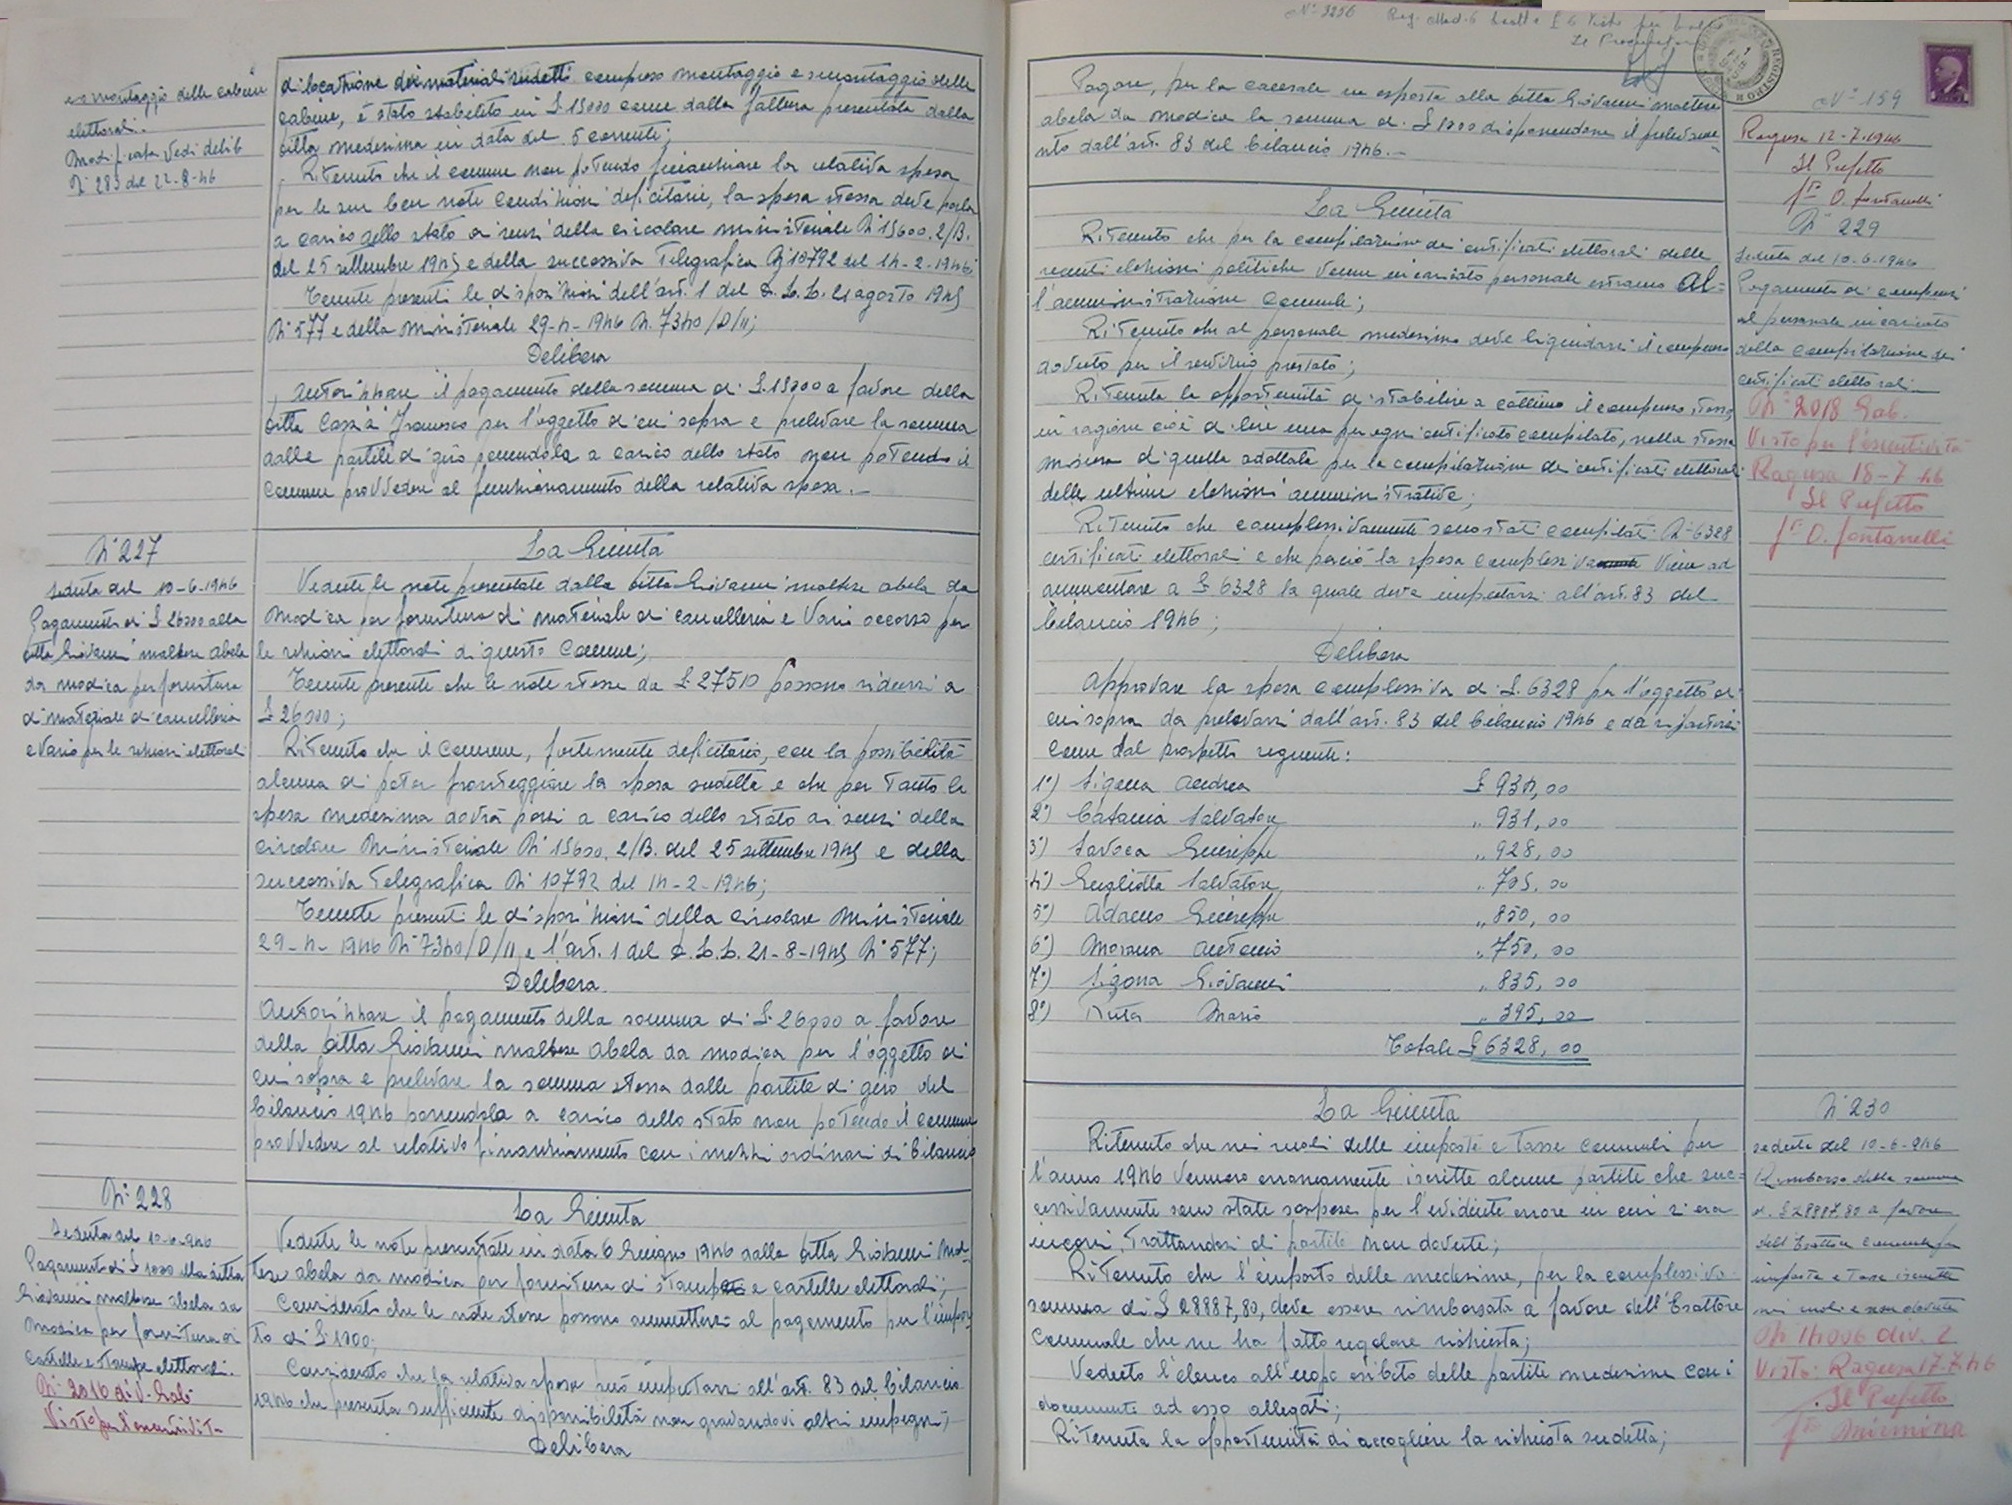 e smontaggio delle cabine
elettorali.
Modificata Vedi delib
N° 283 del 22-8-46
di locazione dei materiali sudetti compreso montaggio e smontaggio delle
cabine, è stato stabilito in £ 15000 come dalla fattura presentata dalla
Ditta medesima in data del 5 corrente;
Ritenuto che il comune non potendo finanziare la relativa spesa
per le sue ben note condizioni deficitarie, la spesa stessa deve porla
a carico dello stato ai sensi della circolare ministeriale N° 15600.2/B.
del 25 settembre 1945 e della successiva Telegrafica N° 10792 del 14-2-1946;
Tenute presenti le disposizioni dell'art. 1 del D.L.L. 21 agosto 1945
N° 577 e della Ministeriale 29-4-1946 N. 7340/D/11;
Delibera
Autorizzare il pagamento della somma di £. 15000 a favore della
Ditta Francesco per l'oggetto di cui sopra e prelevare la somma
dalle partite di giro ponendola a carico dello stato non potendo il
Comune provvedere al funzionamento della relativa spesa.—
N° 227
Seduta del 10-6-1946
Pagamento di £ 26000 alla
Ditta Giovanni Maltese Abela
da Modica per fornitura
di materiale di cancelleria
e vario per le elezioni elettorali
La Giunta
Vedute le note presentate dalla Ditta Giovanni Maltese Abela da
Modica per fornitura di materiale di cancelleria e vario occorso per
le elezioni elettorali di questo Comune;
Tenute presente che le note stesse da £ 27510 possono ridursi a
£ 26000;
Ritenuto che il Comune, fortemente deficitario, con la possibilità
alcuna di poter fronteggiare la spesa sudetta e che per tanto la
spesa medesima dovrà porsi a carico dello stato ai sensi della
circolare Ministeriale N° 15600.2/B. del 25 settembre 1945 e della
successiva Telegrafica N° 10792 del 14-2-1946;
Tenute presenti le disposizioni della circolare Ministeriale
29-4-1946 N° 7340/D/11 e l'art. 1 del D.L.L. 21-8-1945 N° 577;
Delibera
Autorizzare il pagamento della somma di £. 26000 a favore
della Ditta Giovanni Maltese Abela da Modica per l'oggetto di
cui sopra e prelevare la somma stessa dalle partite di giro del
bilancio 1946 ponendola a carico dello stato non potendo il comune
provvedere al relativo finanziamento con i mezzi ordinari di bilancio
N° 228
Seduta del 10-6-946
Pagamento di £ 1000 alla Ditta
Giovanni Maltese Abela da
Modica per fornitura di
Cartelle e stampe elettorali.
N° 2016 div. Gab.
Visto per l'esecutività
La Giunta
Vedute le note presentate in data 6 Giugno 1946 dalla Ditta Giovanni Mal-
tese Abela da Modica per fornitura di stampe e cartelle elettorali;
Considerato che le note stesse possono ammettersi al pagamento per l'impor-
to di £ 1000;
Considerato che la relativa spesa può imputarsi all'art. 83 del bilancio
1946 che presenta sufficiente disponibilità non gravandovi altri impegni;
Delibera
N° 3256 Reg. Mod. 6 £ 6 Visto per bollo
Il Procuratore
Pagare, per la causale in esposta alla Ditta Giovanni Maltese
Abela da Modica la somma di £ 1000 disponendone il prelevame-
nto dall'art. 83 del bilancio 1946.—
N° 159
Ragusa 12-7-1946
Il Prefetto
f° O. Fontanelli
N° 229
Seduta del 10-6-1946
Pagamento di compensi
al personale incaricato
della compilazione dei
certificati elettorali
N° 2018 Gab.
Visto per l'esecutività
Ragusa 18-7-46
Il Prefetto
f° O. Fontanelli
La Giunta
Ritenuto che per la compilazione dei certificati elettorali delle
recenti elezioni politiche venne incaricato personale estraneo al-
l'amministrazione Comunale;
Ritenuto che al personale medesimo deve liquidarsi il compenso
dovuto per il servizio prestato;
Ritenuta la opportunità di stabilire a cottimo il compenso stesso
in ragione cioè di lire una per ogni certificato compilato, nella stessa
misura di quelle adottate per la compilazione dei certificati elettorali
delle ultime elezioni amministrative;
Ritenuto che complessivamente sono stati compilati N° 6328
certificati elettorali e che perciò la spesa complessiva viene ad
ammontare a £ 6328 la quale deve imputarsi all'art. 83 del
bilancio 1946;
Delibera
Approvare la spesa complessiva di £. 6328 per l'oggetto di
cui sopra da prelevarsi dall'art. 83 del bilancio 1946 e da ripartirsi
come dal prospetto seguente:
1°) Sigona Andrea £ 934,00
2°) Catania Salvatore „ 931,00
3°) Savoca Giuseppe „ 928,00
4°) Gugliotta Salvatore „ 705,00
5°) Adamo Giuseppe „ 850,00
6°) Morana Antonio „ 750,00
7°) Sigona Giovanni „ 835,00
8°) Ruta Mario „ 395,00
Totale £ 6328,00
N° 230
seduta del 10-6-946
Rimborso della somma
di £ 28887,80 a favore
dell'Esattore Comunale per
imposte e tasse iscritte
nei ruoli e non dovute
N° 14006 div. 2
Visto: Ragusa 17-7-46
Il Prefetto
La Giunta
Ritenuto che nei ruoli delle imposte e tasse comunali per
l'anno 1946 vennero erroneamente iscritte alcune partite che suc-
cessivamente sono state sospese per l'evidente errore in cui si era
incorsi, trattandosi di partite non dovute;
Ritenuto che l'importo delle medesime, per la complessiva
somma di £ 28887,80, deve essere rimborsata a favore dell'Esattore
Comunale che ne ha fatto regolare richiesta;
Veduto l'elenco all'uopo esibito delle partite medesime con i
documenti ad esso allegati;
Ritenuta la opportunità di accogliere la richiesta sudetta;